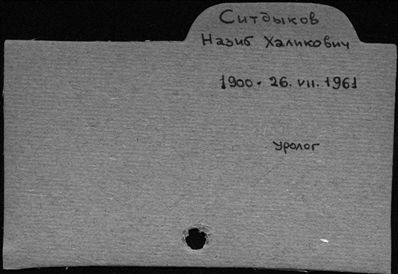 Ситдыков
Назиб Халикович
1900 - 26. VII. 1961
уролог